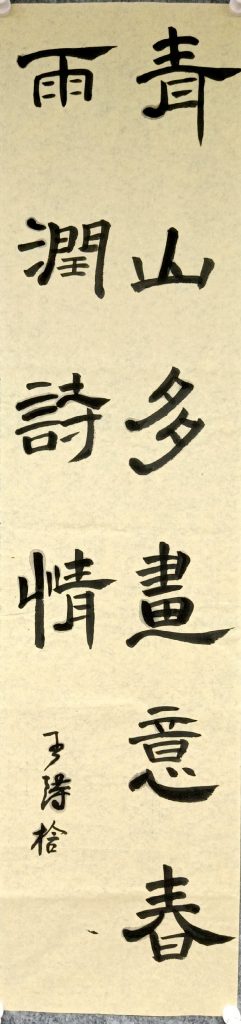 青山多畫意春
雨潤詩情
王